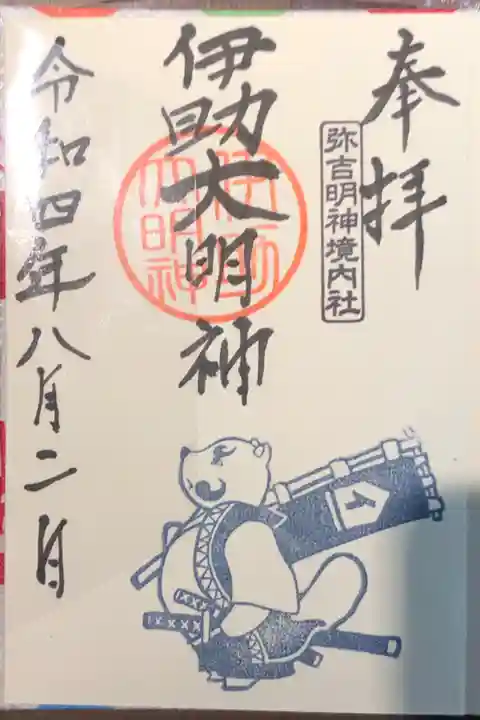 奉拝
弥吉明神境内社
伊助大明神
伊助
大明神
令和四年八月二日
イ